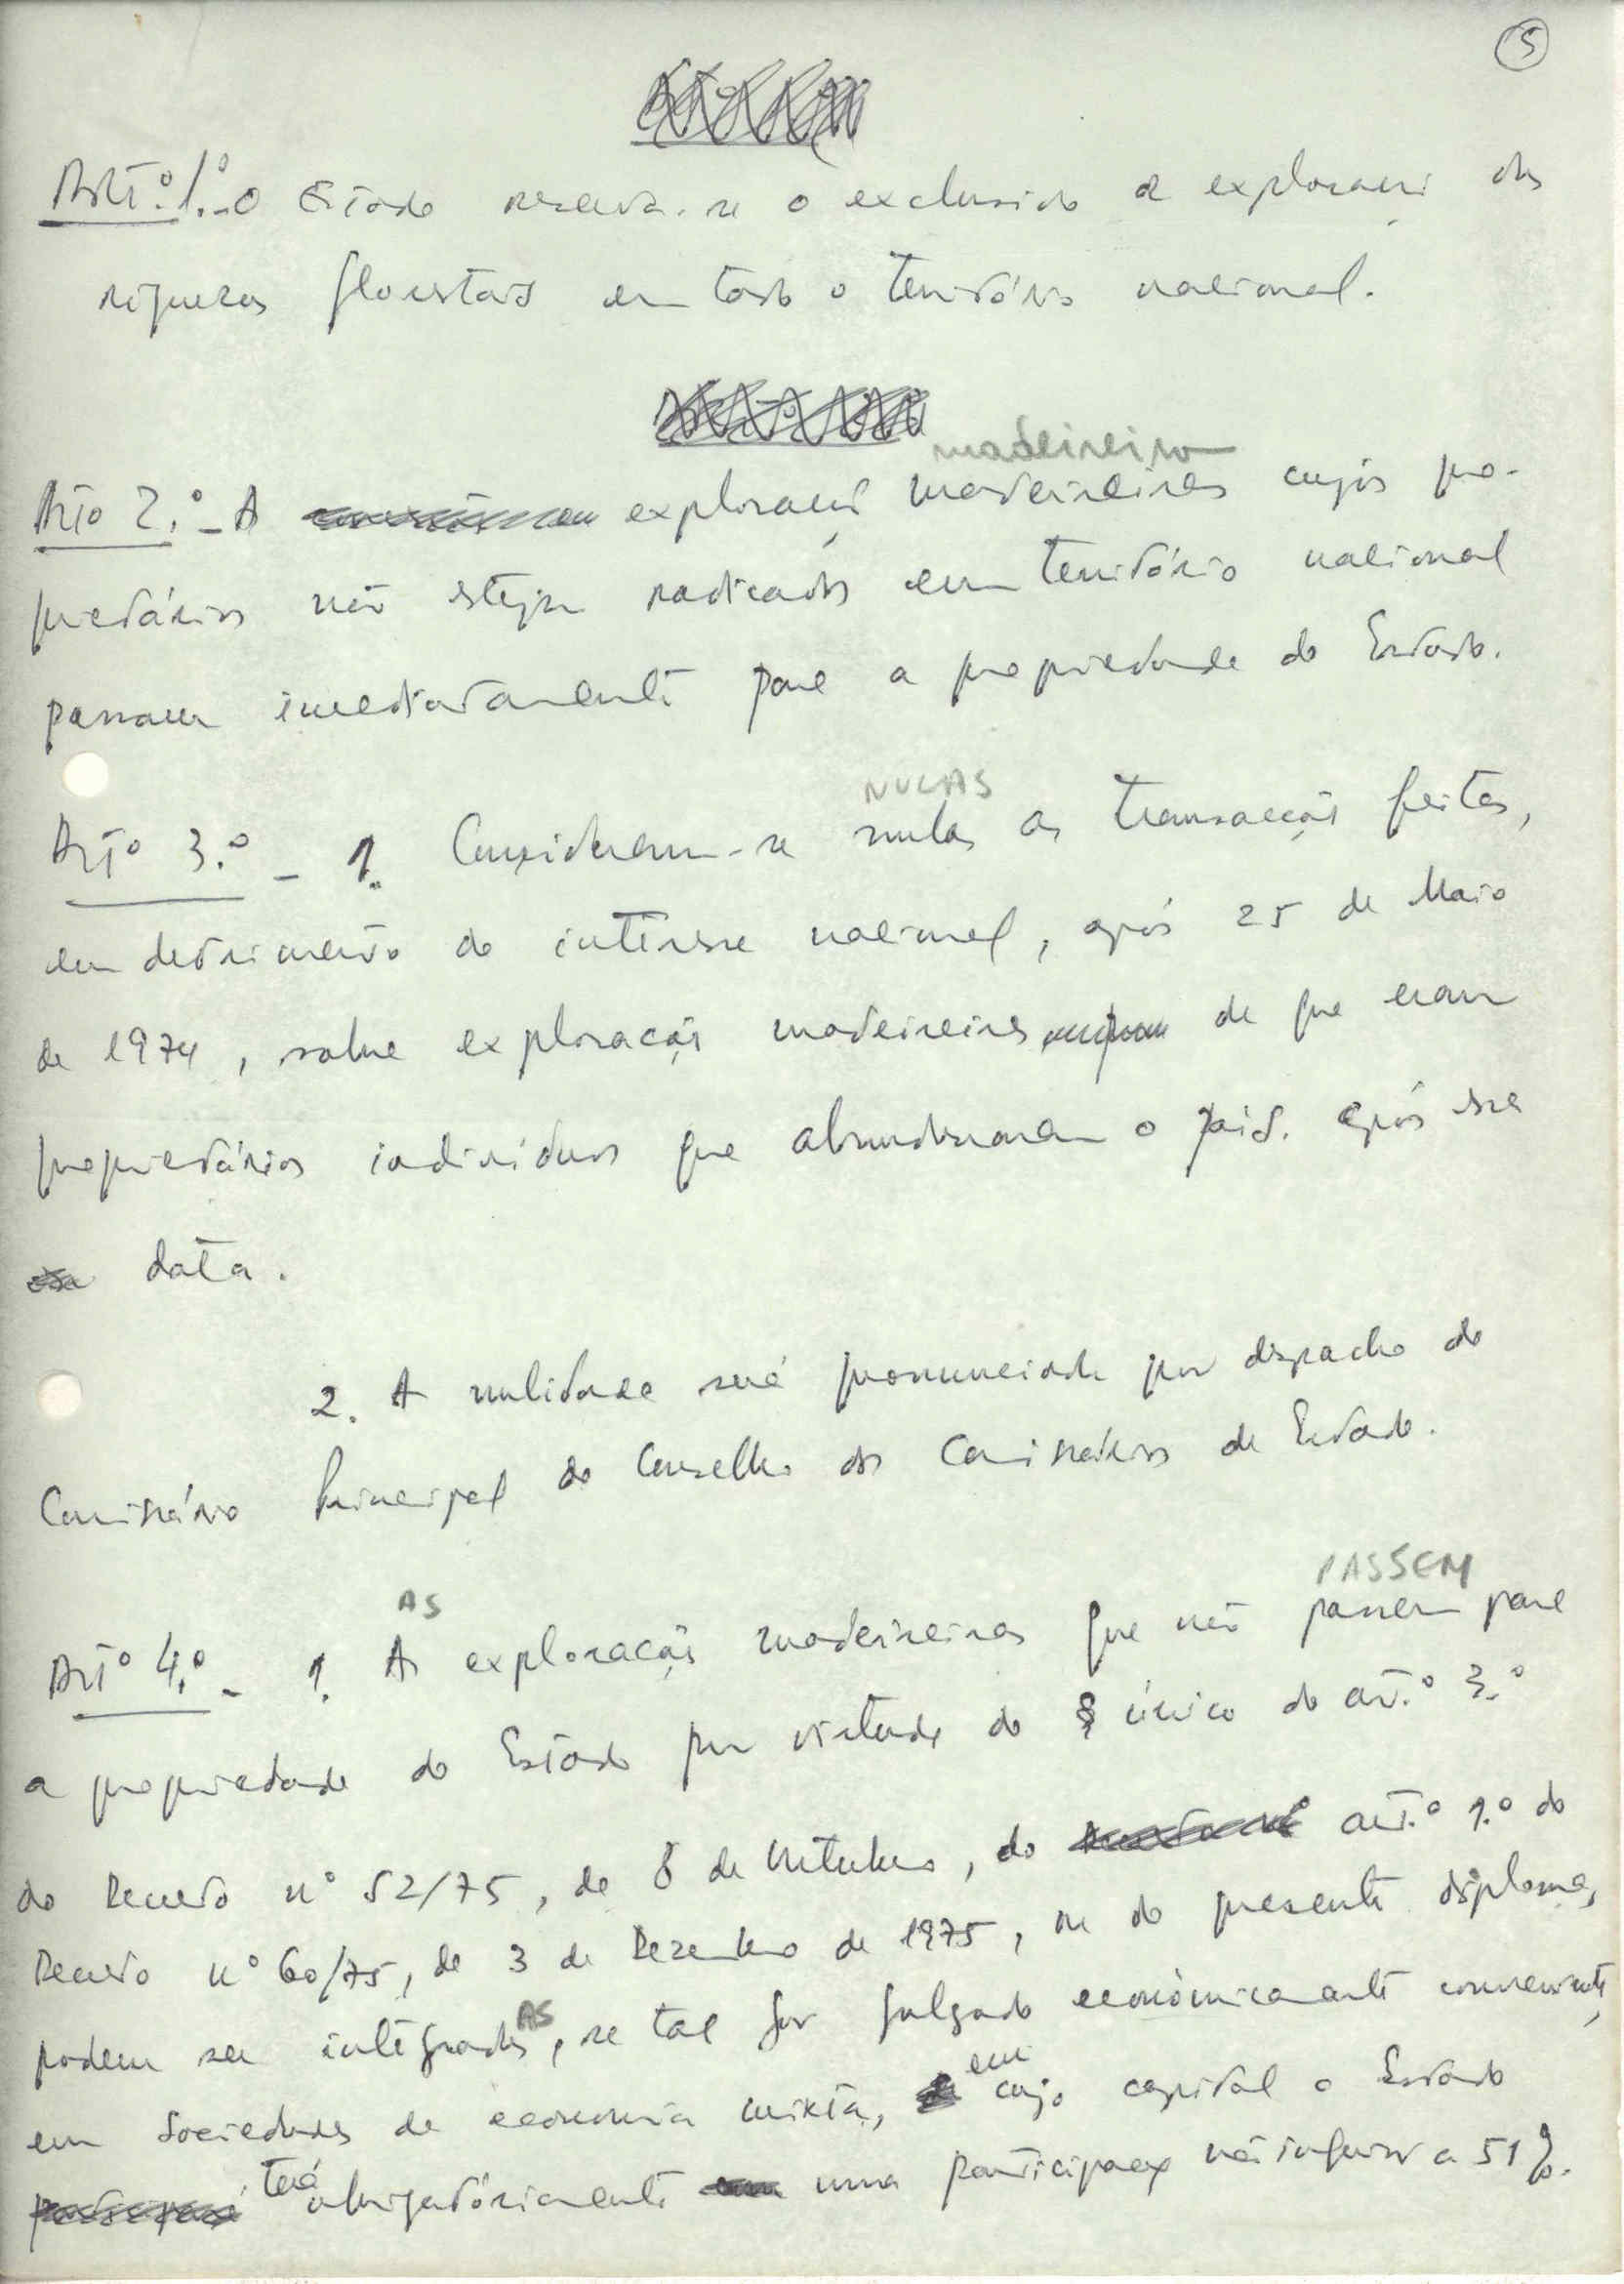 5
Artº. 1º.- O Estado reserva-se o exclusivo da exploração das
riquezas florestais em todo o território nacional.
madeireira
Artº 2.º - A exploração madeireiras cujos pro-
prietários não estejam radicados em território nacional
passam imediatamente para a propriedade do Estado.
NULAS
Artº 3.º - 1. Consideram-se nulas as transacções feitas,
em detrimento do interesse nacional, após 25 de Maio
de 1974, sobre explorações madeireiras de que eram
proprietários indivíduos que abandonaram o país após essa
data.
2. A nulidade será pronunciada por despacho do
Comissário Principal do Conselho dos Comissários de Estado.
AS PASSEM
Artº 4.º - 1. As explorações madeireiras que não passem para
a propriedade do Estado por virtude do § único do art.º 3.º
do Decreto nº 52/75, de 8 de Outubro, do art.º 1.º do
Decreto nº 60/75, de 3 de Dezembro de 1975, ou do presente diploma,
AS
podem ser integradas, se tal for julgado económicamente conveniente,
em
em Sociedades de economia mixta, cujo capital o Estado
terá obrigatóriamente uma participação não inferior a 51%.